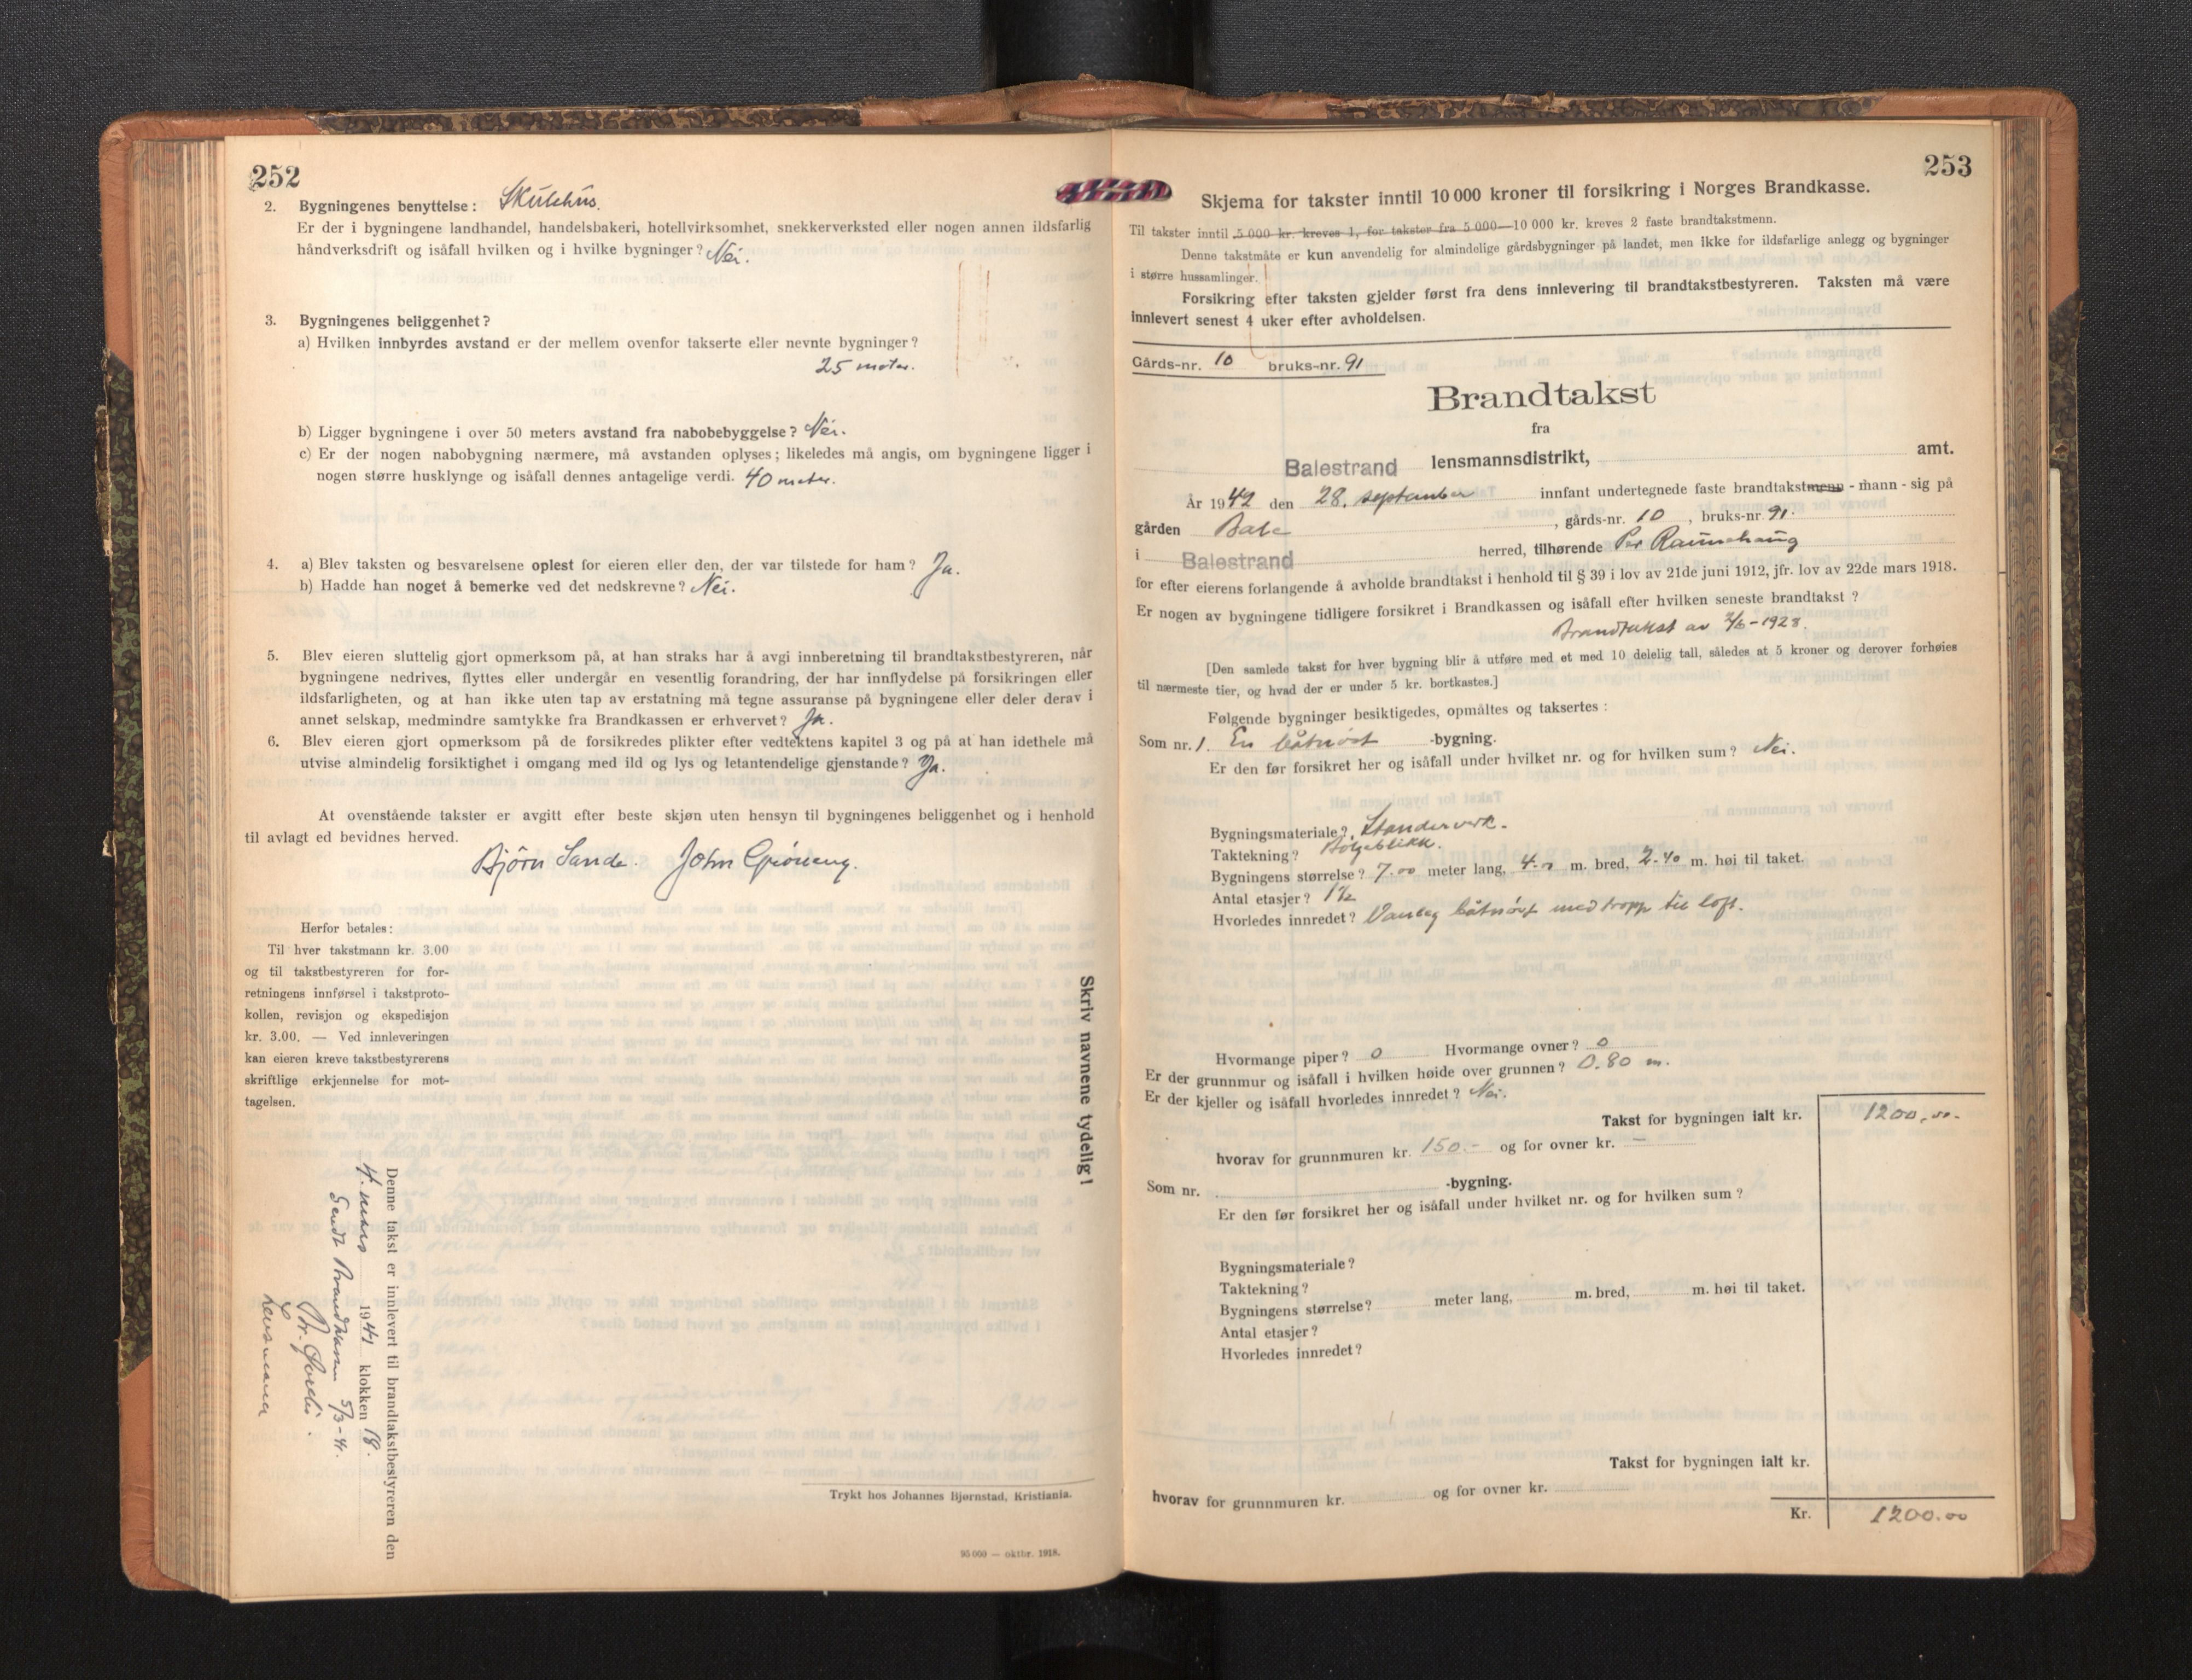 252
2. Bygningenes benyttelse: Skulehus.
Er der i bygningene landhandel, handelsbakeri, hotellvirksomhet, snekkerverksted eller nogen annen ildsfarlig
håndverksdrift og isåfall hvilken og i hvilke bygninger? Nei.
3. Bygningenes beliggenhet?
a) Hvilken innbyrdes avstand er der mellem ovenfor takserte eller nevnte bygninger?
25 meter.
b) Ligger bygningene i over 50 meters avstand fra nabobebyggelse? Nei.
c) Er der nogen nabobygning nærmere, må avstanden oplyses; likeledes må angis, om bygningene ligger i
nogen større husklynge og isåfall dennes antagelige verdi. 40 meter.
4. a) Blev taksten og besvarelsene oplest for eieren eller den, der var tilstede for ham? Ja.
b) Hadde han noget å bemerke ved det nedskrevne? Nei.
5. Blev eieren sluttelig gjort opmerksom på, at han straks har å avgi innberetning til brandtakstbestyreren, når
bygningene nedrives, flyttes eller undergår en vesentlig forandring, der har innflydelse på forsikringen eller
ildsfarligheten, og at han ikke uten tap av erstatning må tegne assuranse på bygningene eller deler derav i
annet selskap, medmindre samtykke fra Brandkassen er erhvervet? Ja.
6. Blev eieren gjort opmerksom på de forsikredes plikter efter vedtektens kapitel 3 og på at han idethele må
utvise almindelig forsiktighet i omgang med ild og lys og letantendelige gjenstande? Ja.
At ovenstående takster er avgitt efter beste skjøn uten hensyn til bygningenes beliggenhet og i henhold
til avlagt ed bevidnes herved.
Bjørn Sande. John Grøneng.
Herfor betales:
Til hver takstmann kr. 3.00
og til takstbestyreren for for-
retningens innførsel i takstproto-
kollen, revisjon og ekspedisjon
kr. 3.00. — Ved innleveringen
kan eieren kreve takstbestyrerens
skriftlige erkjennelse for mot-
tagelsen.
Skriv navnene tydelig!
Denne takst er innlevert til brandtakstbestyreren den
4. mars 1941 klokken 18.
Sendt Brandkassen 5/3-41.
lensmann
Trykt hos Johannes Bjørnstad, Kristiania.
95 000 — oktbr. 1918.
253
Skjema for takster inntil 10 000 kroner til forsikring i Norges Brandkasse.
Til takster inntil 5 000 kr. kreves 1, for takster fra 5 000—10 000 kr. kreves 2 faste brandtakstmenn.
Denne takstmåte er kun anvendelig for almindelige gårdsbygninger på landet, men ikke for ildsfarlige anlegg og bygninger
i større hussamlinger.
Forsikring efter taksten gjelder først fra dens innlevering til brandtakstbestyreren. Taksten må være
innlevert senest 4 uker efter avholdelsen.
Gårds-nr. 10 bruks-nr. 91
Brandtakst
fra
Balestrand lensmannsdistrikt, amt.
År 1942 den 28. september innfant undertegnede faste brandtakstmenn - mann - sig på
gården Bale, gårds-nr. 10, bruks-nr. 91.
i Balestrand herred, tilhørende Per
for efter eierens forlangende å avholde brandtakst i henhold til § 39 i lov av 21de juni 1912, jfr. lov av 22de mars 1918.
Er nogen av bygningene tidligere forsikret i Brandkassen og isåfall efter hvilken seneste brandtakst?
Brandtakst av 2/6-1928.
[Den samlede takst for hver bygning blir å utføre med et med 10 delelig tall, således at 5 kroner og derover forhøies
til nærmeste tier, og hvad der er under 5 kr. bortkastes.]
Følgende bygninger besiktigedes, opmåltes og taksertes:
Som nr. 1. En båtnøst -bygning.
Er den før forsikret her og isåfall under hvilket nr. og for hvilken sum? Nei.
Bygningsmateriale? Standerverk.
Taktekning? Bølgeblikk.
Bygningens størrelse? 7.00 meter lang, 4.00 m. bred, 2.40 m. høi til taket.
Antal etasjer? 1½
Hvorledes innredet? Vanleg båtnøst med tropp til loft.
Hvormange piper? 0 Hvormange ovner? 0
Er der grunnmur og isåfall i hvilken høide over grunnen? 0.80 m.
Er der kjeller og isåfall hvorledes innredet? Nei.
Takst for bygningen ialt kr. 1200,00.-
hvorav for grunnmuren kr. 150.- og for ovner kr. —
Som nr. -bygning.
Er den før forsikret her og isåfall under hvilket nr. og for hvilken sum?
Bygningsmateriale?
Taktekning?
Bygningens størrelse? meter lang, m. bred, m. høi til taket.
Antal etasjer?
Hvorledes innredet?
Takst for bygningen ialt kr.
hvorav for grunnmuren kr. og for ovner kr.
Kr. 1200.00